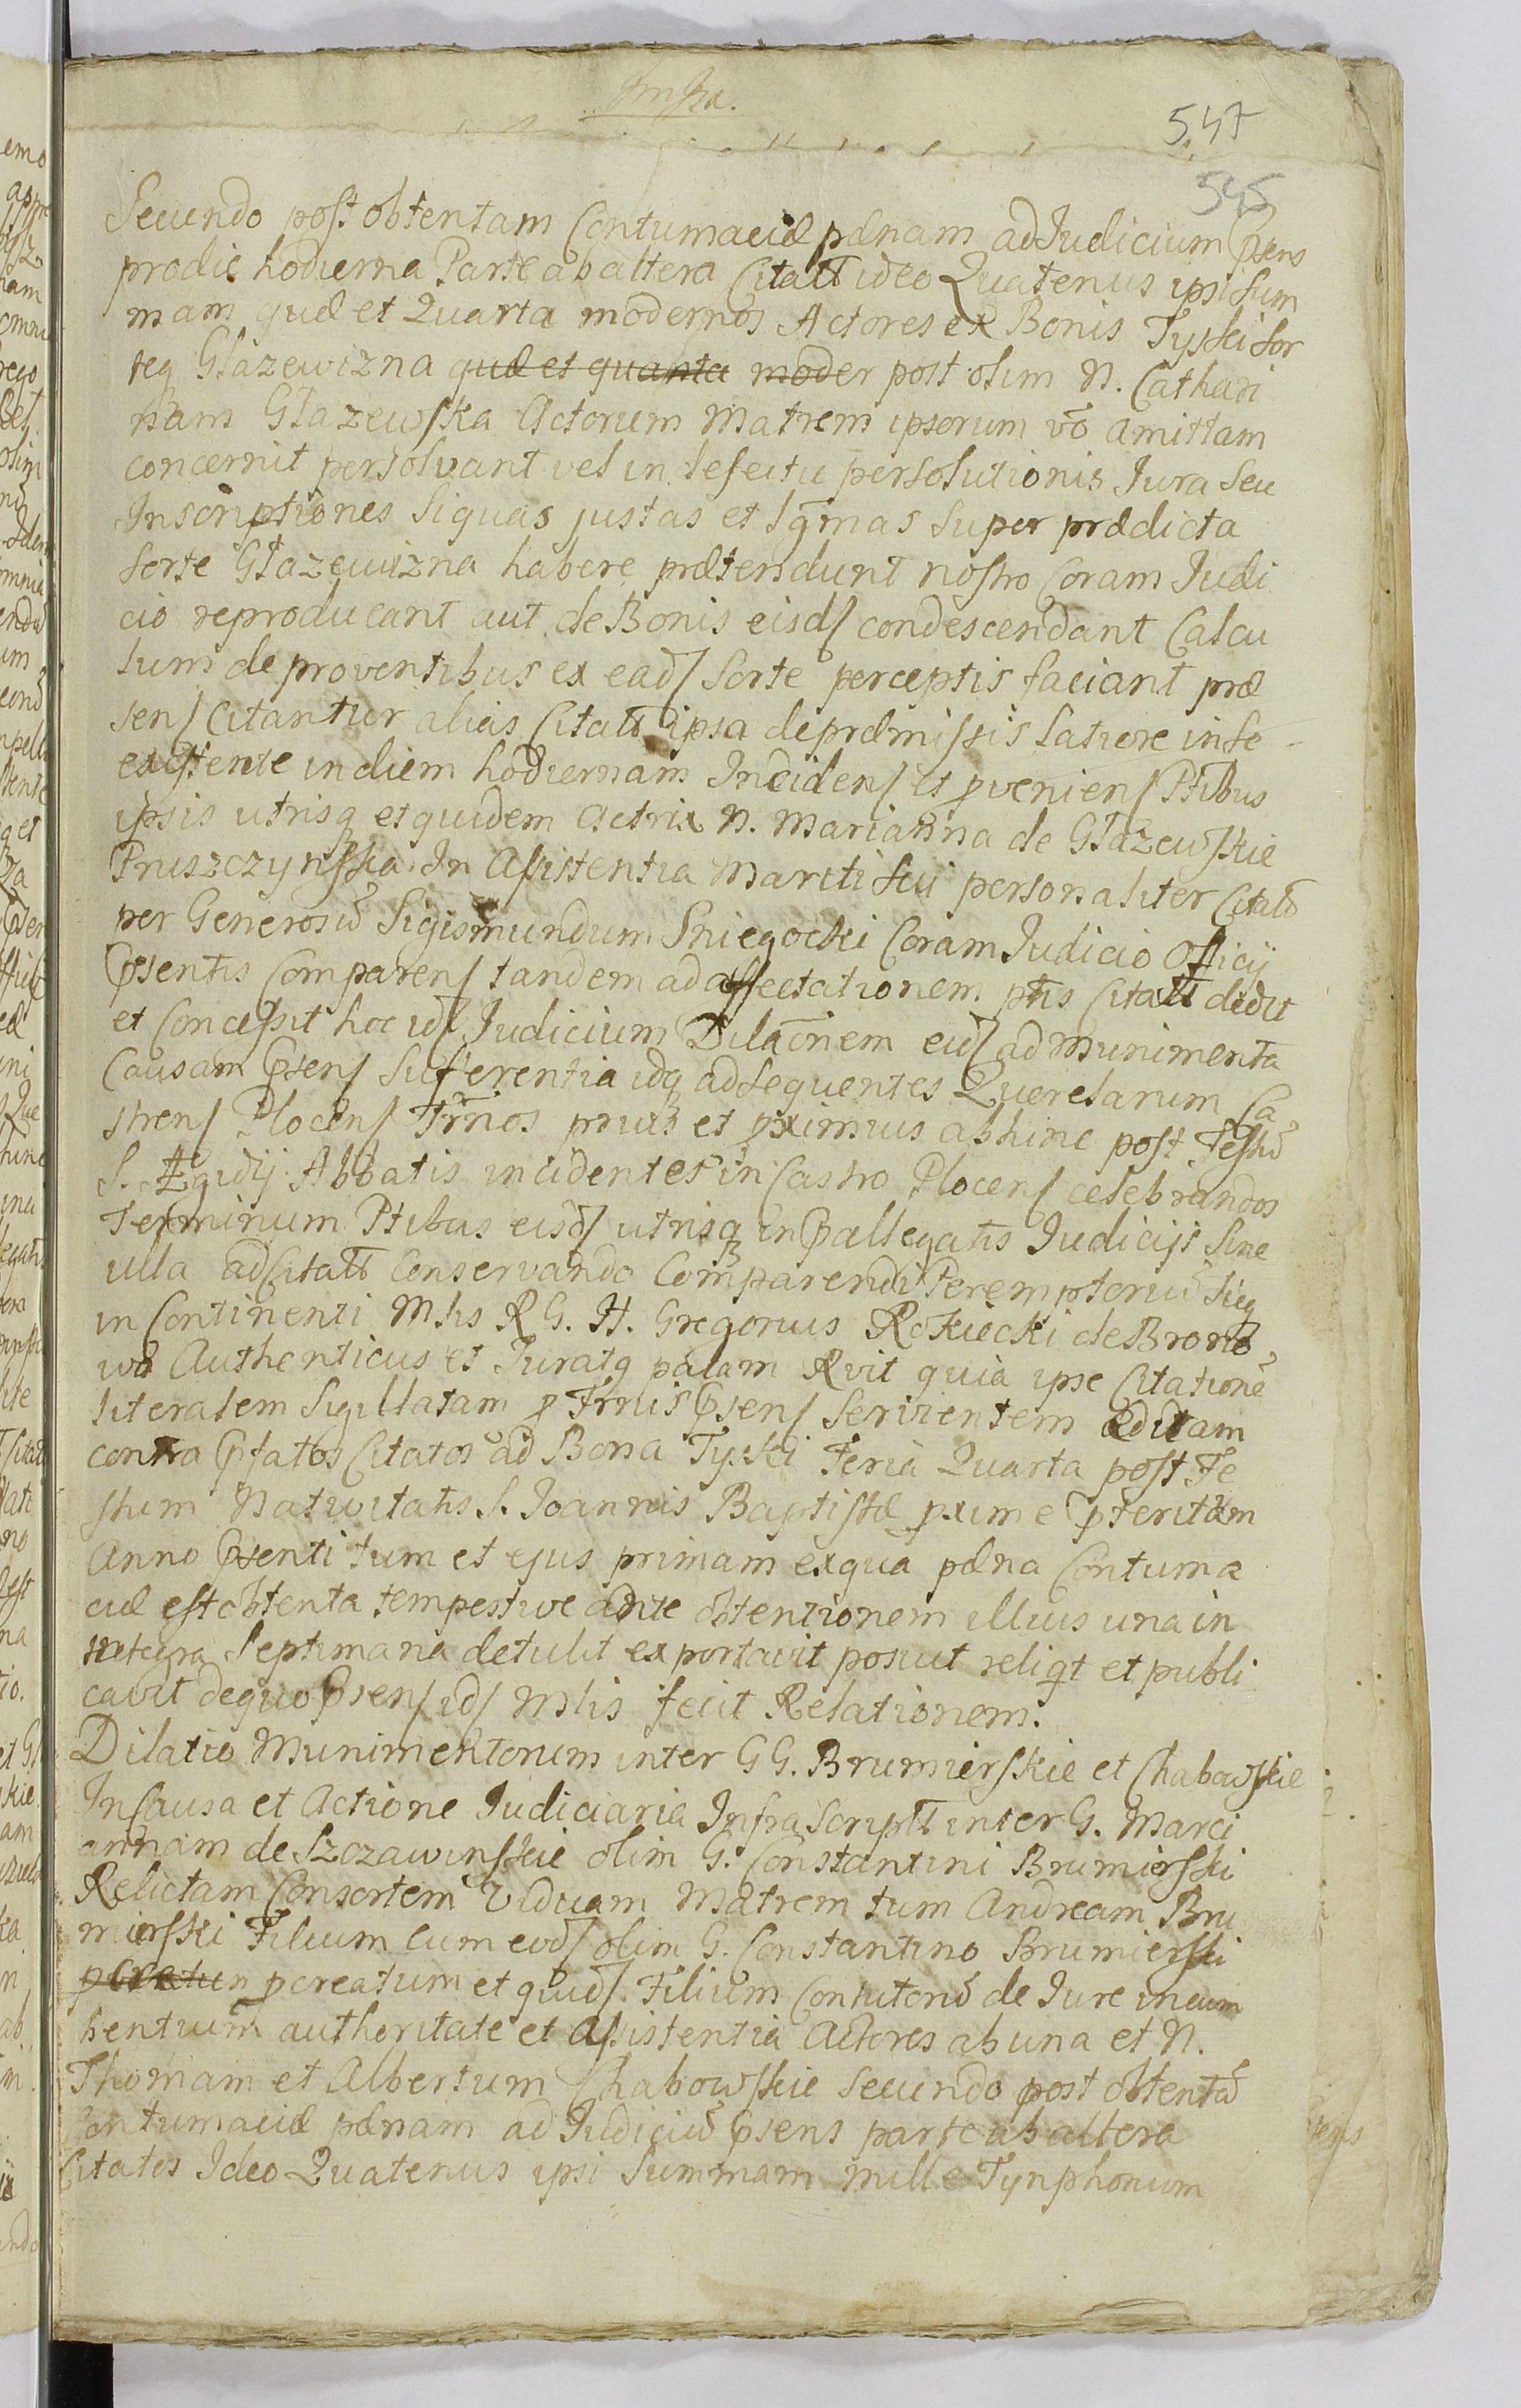 547
545
Secundo post obtentam Contumaciæ pænam ad Judicium Pñsens
pro die hodierna Parte ab altera Citatt ideo Quatenus ipsi Sum
mam quæ et Quarta modernos Actores ex Bonis Tyski Sor
teq Głazewizna quæ et quanta moder post olim N. Cathari
nam Głazewska Actorum Matrem ipsorum võ Amittam
concernit persolvant vel in defectu persolutionis Jura Seu
Inscriptiones Siquas justas et lg̃mas Super prædicta
Sorte Głazewizna habere prætendunt nostro Coram Judi
cio reproducant aut de Bonis eisd condescendant Calcu
lum de proventibus ex ead Sorte perceptis faciant præ
sens Citantur alias Citatt ipsa de præmissis Latiore in se
existente in diem hodiernam Incidens et pveniens Ptibus
ipsis utrisq et quidem Actrix N. Marianna de Głazewskie
Pruszczynska In Assistentia Mariti Sui personaliter Citatt
per Generosũ Sigismundum Sniegocki Coram Judicio Officij
Pñsentis Comparens tandem ad affectationem ptis Citatt dedit
et Concessit hoc id Judicium Dilaõnem eid ad Munimenta
Causam Pñsens Sufferentia idq ad Sequentes Querelarum Ca
strens Plocens Trños prius et pximius abhinc post Festũ
S. Ægidij Abbatis incidentes in Castro Plocens celebrandos
Terminum Ptibus eisd utrisq in Pallegatis Judicijs Sine
ulla adCitatt Conservando Comparendi Peremptoriũ Sicq
in Continenti Mlis R G. H. Gregorius Rokicki de Brono
wo Authenticus et Juratq palam Rvit quia ipse Citationẽ
literalem Sigillatam p Trnis Pñsens Servientem Editam
contra Pfatos Citatos ad Bona Tyski Feria Quarta post Fe
stum Nativitatis S. Joannis Baptistæ pxime pteritam
Anno Pñsenti tum et ejus primam ex qua pæna Contuma
ciæ est obtenta tempestive ante obtentionem illius una in
integra Septimana detulit exportavit posuit reliqt et publi
cavit de quo Pñsens id Mlis fecit Relationem.
Dilatio Munimentorum inter GG. Brumierskie et Chabowskie
In Causa et Actione Judiciaria Infra Scriptt inter G. Marci
annam de Szczawinskie olim G. Constantini Brumierski
Relictam Consortem Viduam Matrem tum Andream Bru
mierski Filium Cum eod olim G. Constantino Brumierski
pcreatun pcreatum et quid Filium Contutorũ de Jure incum
bentium authoritate et Assistentia Actores ab una et N.
Thomam et Albertum Chabowskie Secundo post obtentã
Contumaciæ pænam ad Judiciũ Pñsens parte ab altera
Citatos Ideo Quatenus ipsi Summam mille Tynphonum